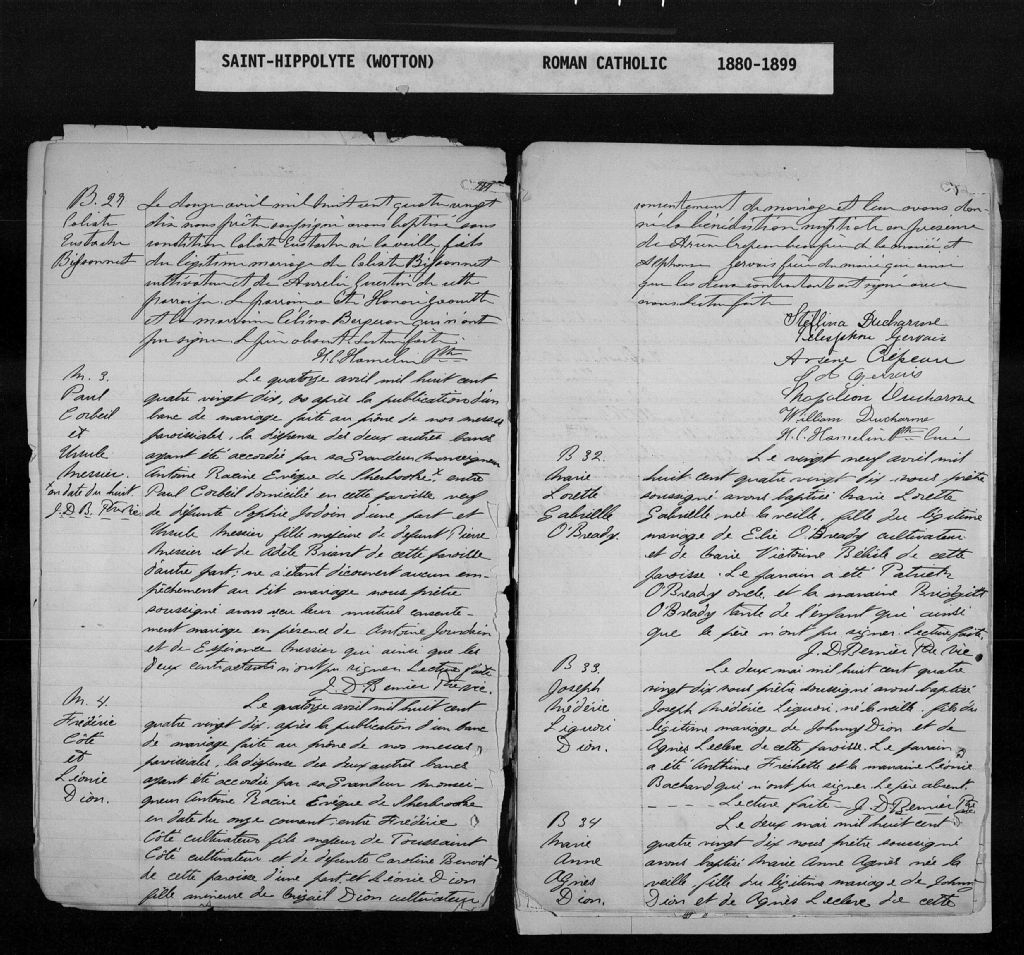 SAINT-HIPPOLYTE (WOTTON) ROMAN CATHOLIC 1880-1899
B. 27
Calixte
Eustache
Bissonnet
Le douze avril mil huit cent quatre vingt
dix nous prêtre soussigné avons baptisé sous
condition Calixte Eustache né la veille fils
du légitime mariage de Calixte Bissonnet
cultivateur et de Aurelie Guertin de cette
paroisse. Le parrain a été Honoré
et la marraine Célina Bergeron qui n'ont
pu signer. Le père absent. Lecture faite.
H. C. Hamelin Ptre
M. 3.
Paul
Corbeil
et
Ursule
Messier
x en date du huit
J. D. B. Ptre Vic
Le quatorze avril mil huit cent
quatre vingt dix, après la publication d'un
banc de mariage faite au prône de nos messes
paroissiales, la dispense des deux autres bancs
ayant été accordée par sa Grandeur Monseigneur
Antoine Racine Evêque de Sherbrooke x entre
Paul Corbeil domicilié en cette paroisse veuf
de défunte Sophie Jodoin d'une part et
Ursule Messier fille majeure de défunt Pierre
Messier et de Adèle Briant de cette paroisse
d'autre part; ne s'étant découvert aucun em-
pêchement au dit mariage nous prêtre
soussigné avons reçu leur mutuel consente-
ment mariage en présence de Antoine Jourdain
et de Espérance Messier qui ainsi que les
deux contractants n'ont pu signer Lecture faite
J. D. Bernier Ptre vic.
M. 4.
Frédéric
Côté
et
Léonie
Dion.
Le quatorze avril mil huit cent
quatre vingt dix, après la publication d'un banc
de mariage faite au prône de nos messes
paroissiales, la dispense des deux autres bancs
ayant été accordée par sa Grandeur Monsei-
gneur Antoine Racine Evêque de Sherbrooke
en date du onze courant entre Frédéric
Côté cultivateur fils majeur de Toussaint
Côté cultivateur et de défunte Caroline Benoit
de cette paroisse d'une part et Léonie Dion
fille mineure de Dion cultivateur
consentement de mariage et leur avons don-
né la bénédiction nuptiale en présence
de Arsène Crépeau beau frère de la mariée et
Alphonse Gervais frère du marié qui ainsi
que les deux contractants ont signé avec
nous. Lecture faite
Stellina Ducharme
Télesphore Gervais
Arsène Crépeau
Gervais
Napoléon Ducharme
William Ducharme
H. C. Hamelin Ptre Curé
B 32
Marie
Lorette
Gabrielle
O'Bready.
Le vingt neuf avril mil
huit cent quatre vingt dix nous prêtre
soussigné avons baptisé Marie Lorette
Gabrielle née la veille, fille du légitime
mariage de Elie O'Bready cultivateur
et de Marie Victorine Bélisle de cette
paroisse. Le parrain a été Patrick
O'Bready oncle, et la marraine Bridgitte
O'Bready tante de l'enfant qui ainsi
que le père n'ont pu signer. Lecture faite.
J. D. Bernier Ptre vic
B 33.
Joseph
Médéric
Liguori
Dion.
Le deux mai mil huit cent quatre
vingt dix nous prêtre soussigné avons baptisé
Joseph Médéric Liguori, né la veille, fils du
légitime mariage de Johnny Dion et de
Agnès Leclerc de cette paroisse. Le parrain
a été Anthime Fréchette et la marraine Léonie
Bachand qui n'ont pu signer. Le père absent.
Lecture faite - J. D. Bernier Ptre vic
B 34
Marie
Anne
Agnès
Dion.
Le deux mai mil huit cent
quatre vingt dix nous prêtre soussigné
avons baptisé Marie Anne Agnès née la
veille fille du légitime mariage de Johnny
Dion et de Agnès Leclerc de cette